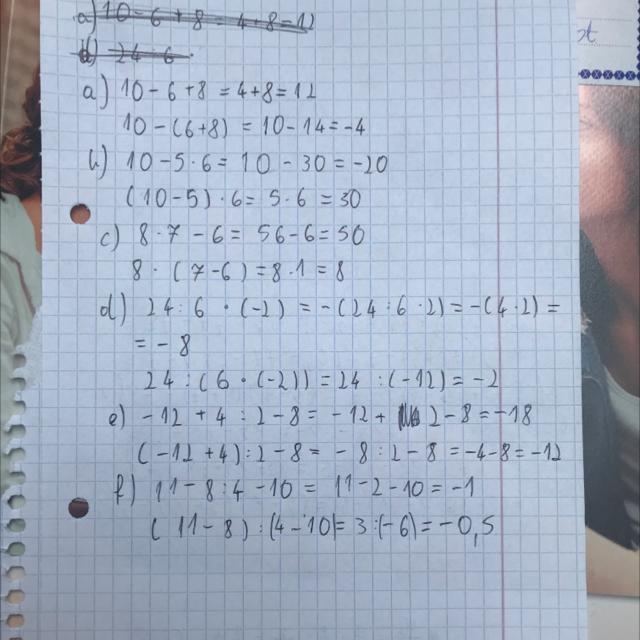 a) 10 - 6 + 8 = 4 + 8 = 12
d) 24 - 6
a) 10 - 6 + 8 = 4 + 8 = 12
10 - (6+8) = 10 - 14 = -4
b) 10 - 5 · 6 = 10 - 30 = -20
(10 - 5) · 6 = 5 · 6 = 30
c) 8 · 7 - 6 = 56 - 6 = 50
8 · (7 - 6) = 8 · 1 = 8
d) 24 : 6 · (-2) = -(24 : 6 · 2) = -(4 · 2) =
= - 8
24 : (6 · (-2)) = 24 : (-12) = -2
e) -12 + 4 : 2 - 8 = -12 + 2 - 8 = -18
(-12 + 4) : 2 - 8 = - 8 : 2 - 8 = -4 - 8 = -12
f) 11 - 8 : 4 - 10 = 11 - 2 - 10 = -1
(11 - 8) : (4 - 10) = 3 : (-6) = -0,5